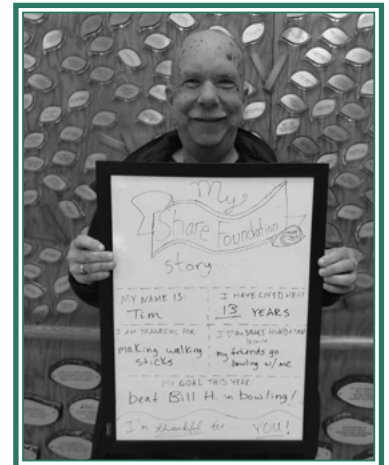 My
Share Foundation
Story
MY NAME IS:
Tim
I HAVE LIVED HERE
13 YEARS
I AM THANKFUL FOR
making walking
sticks
I THANK SHARE FOUNDATION
because
my friends go
bowling w/ me
MY GOAL THIS YEAR
beat Bill H. in bowling!
I'm thankful for YOU!